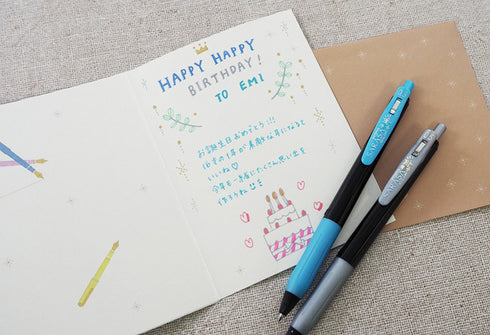 HAPPY HAPPY
BIRTHDAY!
TO EMI
お誕生日おめでとう!!!
16才の1年が素敵な年になると
いいね♡
今年も一緒にたくさん思い出を
作ろうね